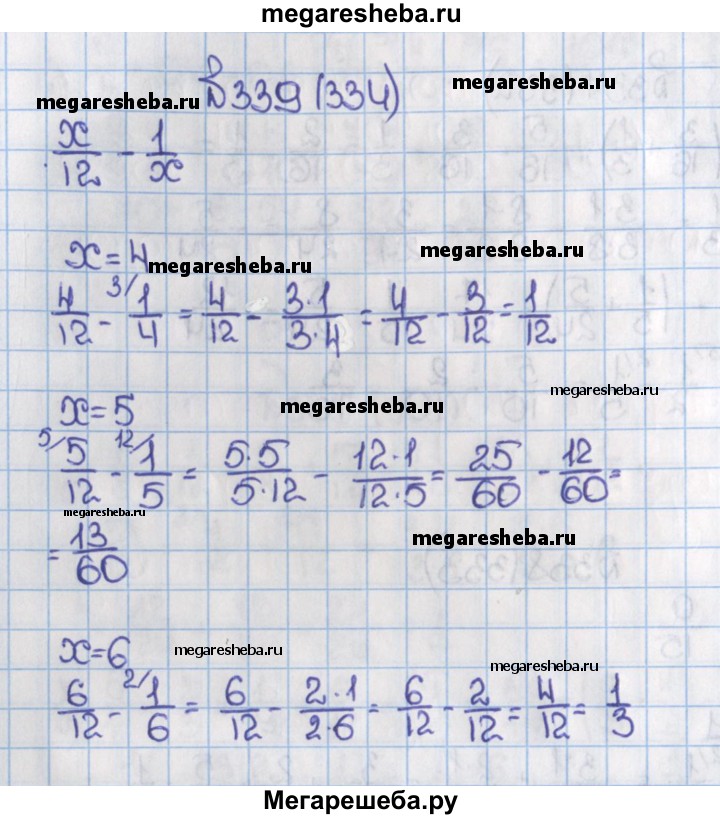 megaresheba.ru
№339 (334)
megaresheba.ru
megaresheba.ru
x/12 - 1/x
x=4
megaresheba.ru
megaresheba.ru
4/12 - 3/ 1/4 = 4/12 - 3·1/3·4 = 4/12 - 3/12 = 1/12
x=5
megaresheba.ru
megaresheba.ru
5/ 5/12 - 12/ 1/5 = 5·5/5·12 - 12·1/12·5 = 25/60 - 12/60 =
megaresheba.ru
megaresheba.ru
= 13/60
x=6
megaresheba.ru
megaresheba.ru
6/12 - 2/ 1/6 = 6/12 - 2·1/2·6 = 6/12 - 2/12 = 4/12 = 1/3
Мегарешеба.ру